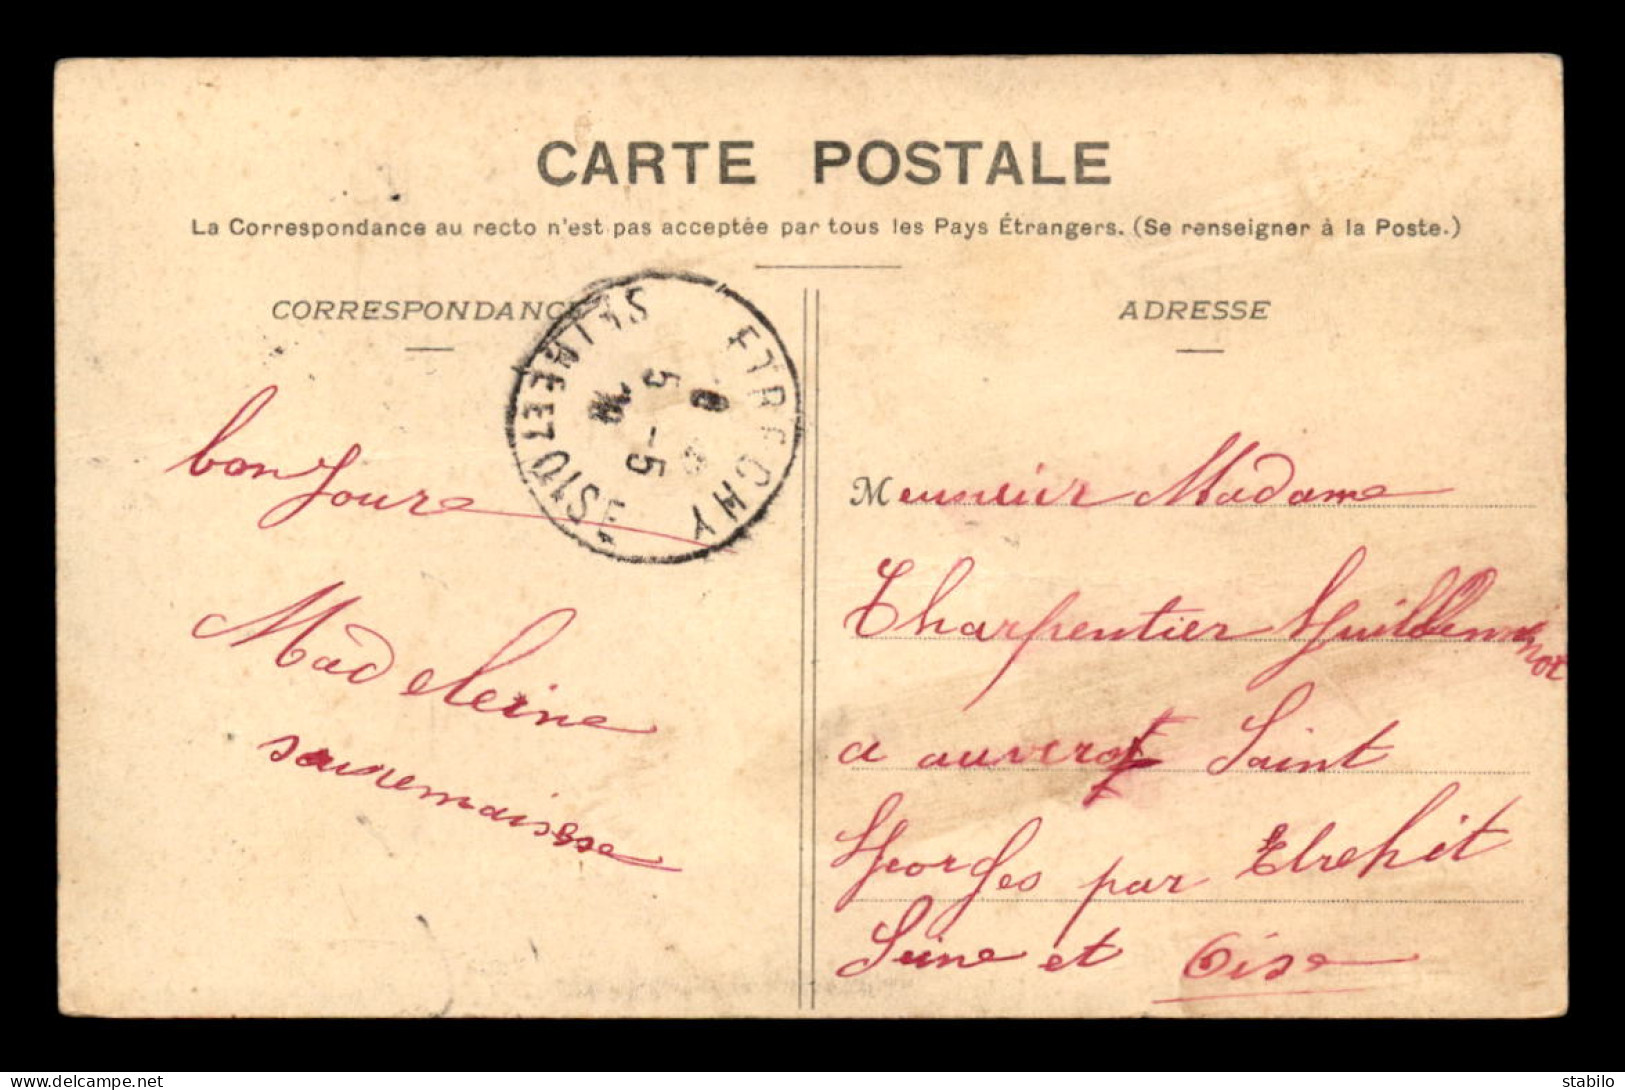 CARTE POSTALE
La Correspondance au recto n'est pas acceptée par tous les Pays Étrangers. (Se renseigner à la Poste.)
CORRESPONDANCE
ADRESSE
bon Joure
Madeleine
ETRECHY
SEINE ET OISE
5 -5
Meusieur Madame
Charpentier
a auvers Saint
Georges par Etrehit
Seine et Oise
delcampe.net
stabilo